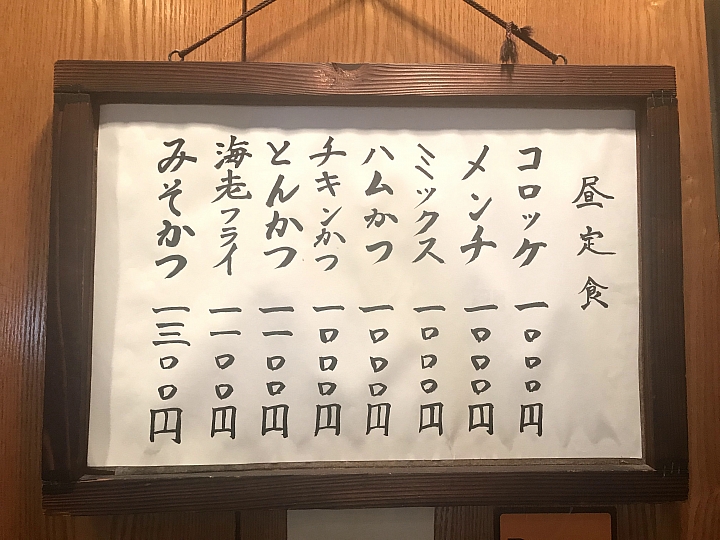 昼定食
コロッケ 一〇〇〇円
メンチ 一〇〇〇円
ミックス 一〇〇〇円
ハムかつ 一〇〇〇円
チキンかつ 一〇〇〇円
とんかつ 一一〇〇円
海老フライ 一一〇〇円
みそかつ 一三〇〇円